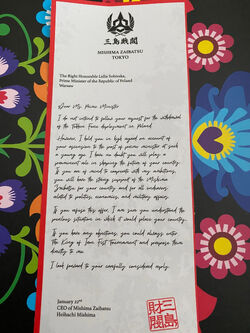 三島財閥
MISHIMA ZAIBATSU
TOKYO
The Right Honourable Lidia Sobieska,
Prime Minister of the Republic of Poland
Warsaw
Dear Ms. Prime Minister
I do not intend to follow your request for the withdrawal
of the Tekken Force deployment in Poland.
However, I hold you in high regard on account of
your ascension to the post of prime minister at such
a young age. I have no doubt you will play a
prominent role in shaping the future of your country.
If you are of mind to cooperate with my ambitions,
you will have the strong support of the Mishima
Zaibatsu for your country and for all endeavors
related to politics, economics, and military affairs.
If you refuse this offer, I am sure you understand the
perilous situation in which it could place your country.
If you have any objections, you could always enter
The King of Iron Fist Tournament and propose them
directly to me.
I look forward to your carefully considered reply.
January 12th
CEO of Mishima Zaibatsu
Heihachi Mishima
三島
財閥